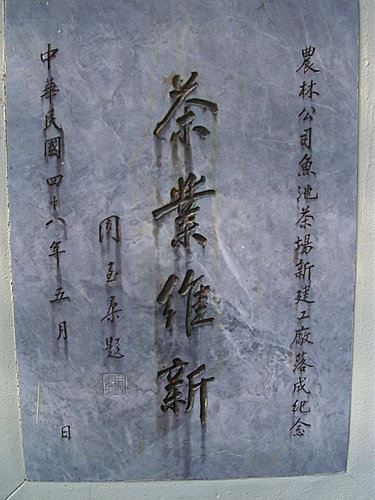 農林公司魚池茶場新建工廠落成紀念
茶業維新
周至柔題
中華民國四十八年五月 日